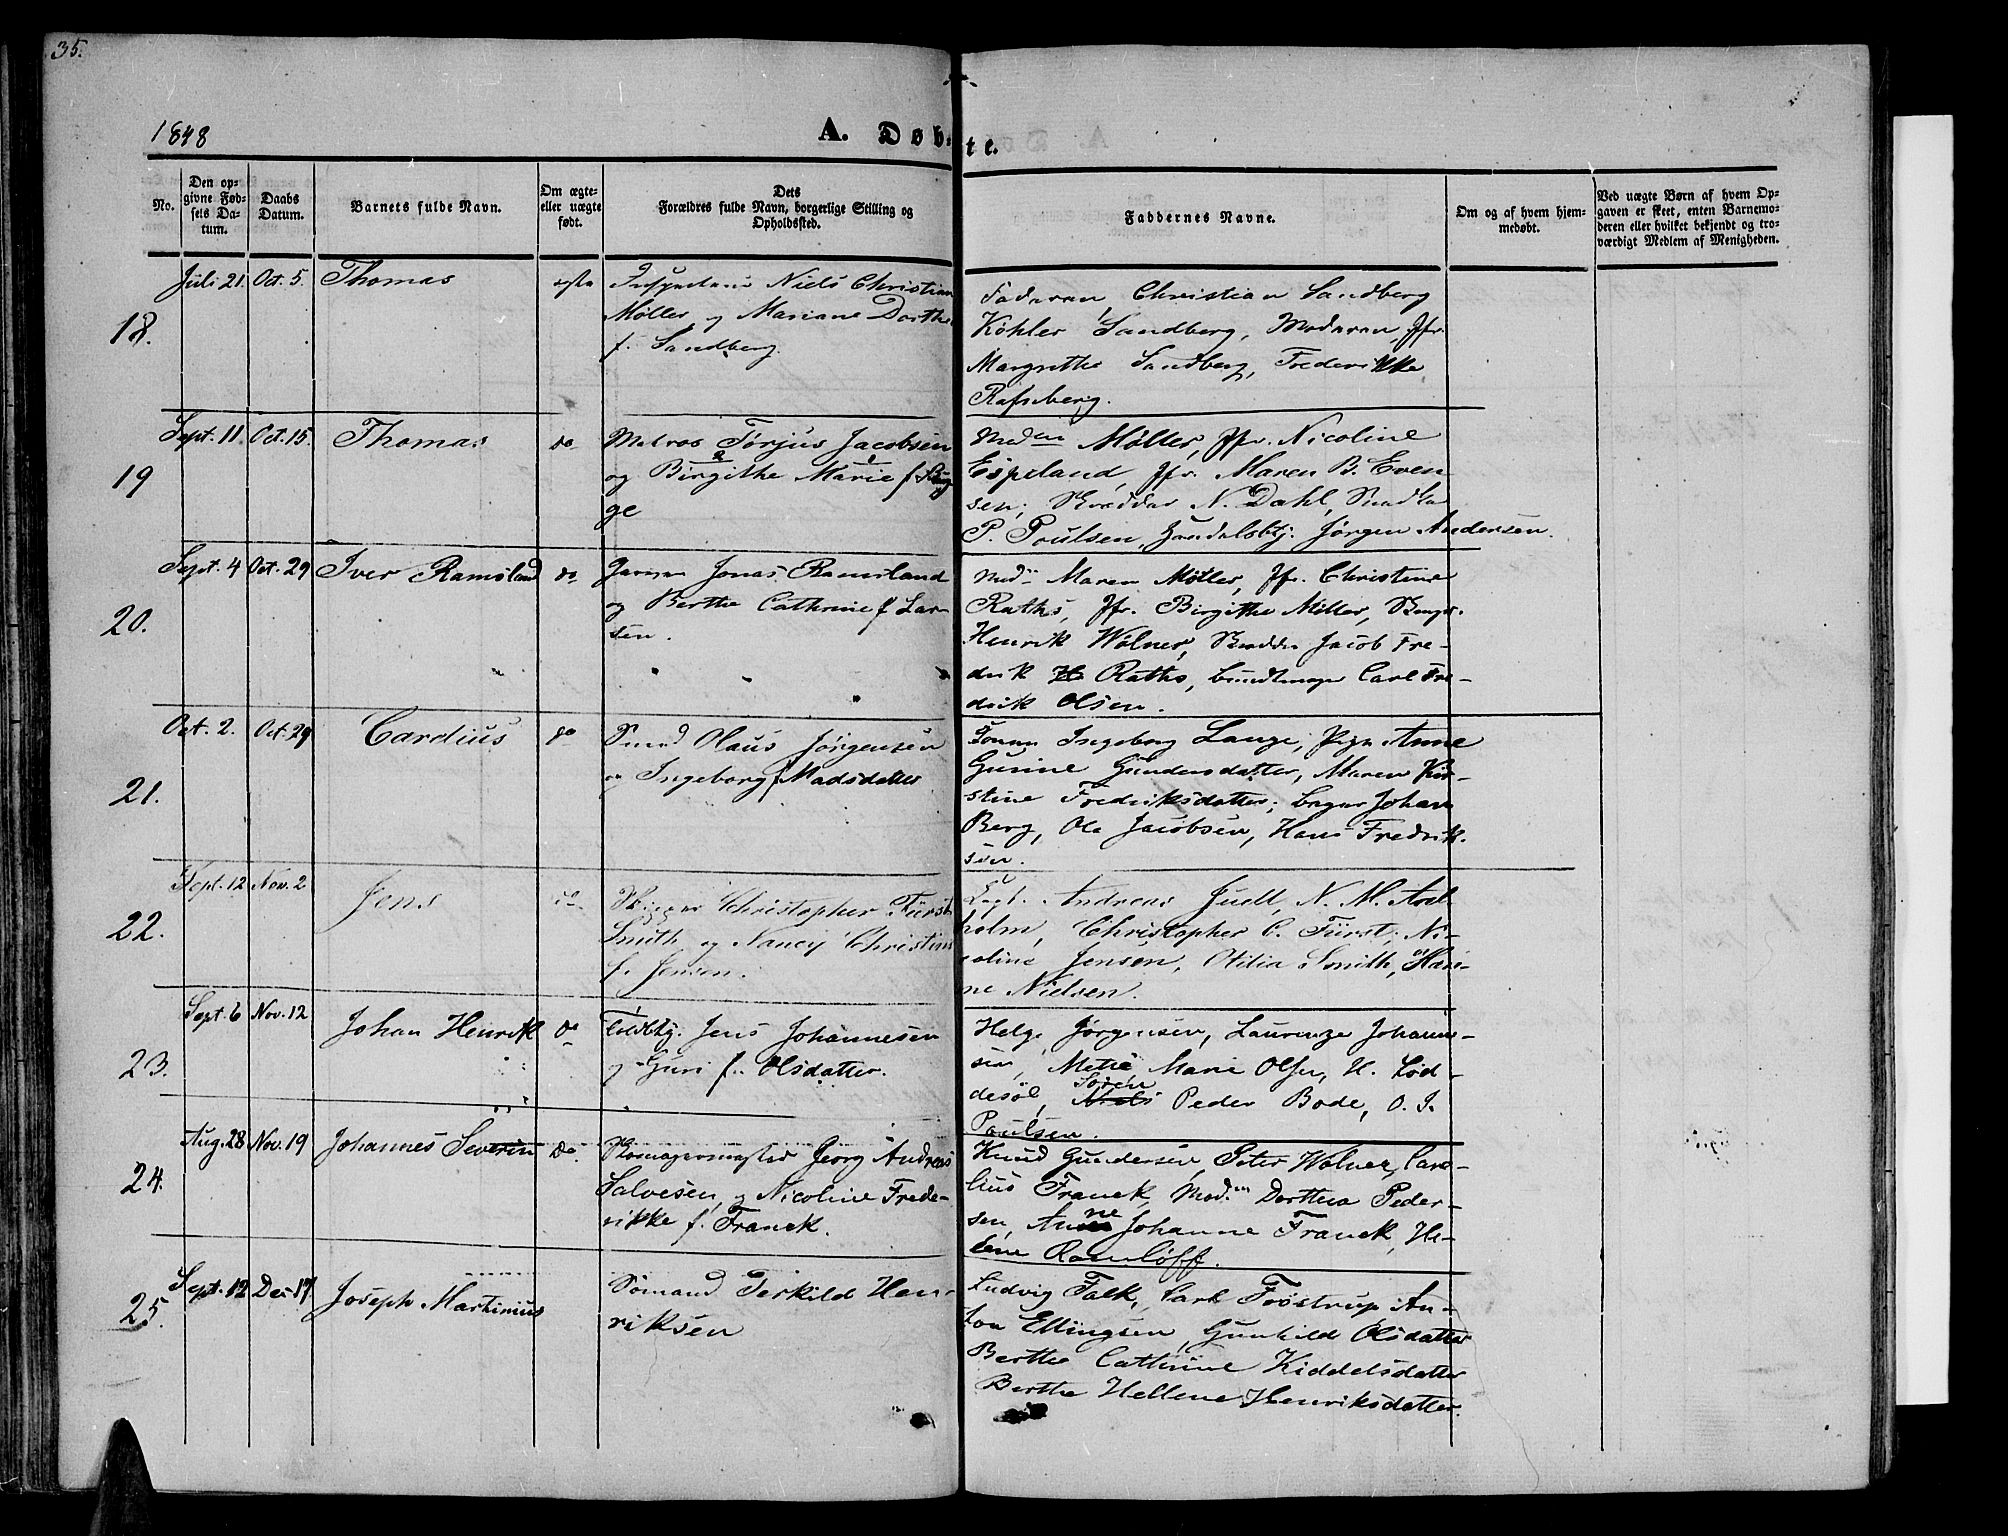 35.
1848
A. Døbte.
No.
Den op-
givne Fød-
sels Da-
tum.
Daabs
Datum.
Barnets fulde Navn.
Om ægte-
eller uægte
født.
Dets
Forældres fulde Navn, borgerlige Stilling og
Opholdssted.
Faddernes Navne.
Om og af hvem hjem-
medøbt.
Ved uægte Børn af hvem Op-
gaven er skeet, enten Barnemo-
deren eller hvilket bekjendt og tro-
værdigt Medlem af Menigheden.
18.
Juli 21.
Oct. 5.
Thomas
ægte
Niels Christian
Møller og Mariane Dorthe
f. Sandberg.
Faderen, Christian Sandberg
Köhler Sandberg, Moderen, Jfr.
Margrethe Sandberg, Frederikke
19
Sept. 11.
Oct. 15.
Thomas
do
Matros Tørjus Jacobsen
og Birgithe Marie f.
ge
Madm Møller, Jfr. Nicoline
Espeland, Jfr. Maren B. Even
sen; N. Dahl,
P. Poulsen, Handelsbtj. Jørgen Andersen.
20.
Sept. 4
Oct. 29
Iver Ramsland
do
Jonas Ramsland
og Berthe Cathrine f. Lar-
sen.
Mad. Maren Møller, Jfr. Christine
Raths, Jfr. Birgithe Miller,
Henrik Wølner, Jacob Fre-
drik Raths, Carl Fre-
drik Olsen.
21.
Oct. 2.
Oct. 29
Cardius
do
Smed Olaus Jørgensen
og Ingeborg f. Madsdatter
Ingeborg Lange, Pige Anne
Gurine Gundersdatter, Maren Kir-
stine Fredriksdatter; Bager Johan
Berg, Ole Jacobsen, Hans Fredrik-
sen.
22.
Sept. 12
Nov. 2
Jens
do
Skipper Christopher Fürst
Smith og Nancy Christine
f. Jensen.
Capt. Andreas Juell, N. M. Axel
holm, Christopher C. Fürst, Ni-
coline Jensen, Otilia Smith,
ne Nielsen.
23.
Sept. 6
Nov. 12
Johan Henrik
do
Toldbtj. Jens Johannesen
og Guri f. Olsdatter.
Helge Jørgensen, Laurenze Johanne-
sen, Mette Marie Olsen, H. Lød-
desøl, Søren Peder Bode, O. J.
Poulsen.
24.
Aug. 28
Nov. 19
Johannes Severin
Do.
Skomagermester Georg Andreas
Salvesen og Nicoline Frede-
rikke f. Franck.
Knud Gundersen, Peter Wølner, Caro-
lius Franck, Madm Dorthea Peder-
sen, Anne Johanne Franck, He-
lene Ramløff.
25.
Sept. 12
Dec. 17
Joseph Martinius
Sømand Terkild Hen-
riksen
Ludvig Falk, Carl Frøstrup, An-
ton Ellingsen, Gunhild Olsdatter
Berthe Cathrine Kiddelsdatter
Berthe Hellene Henriksdatter.